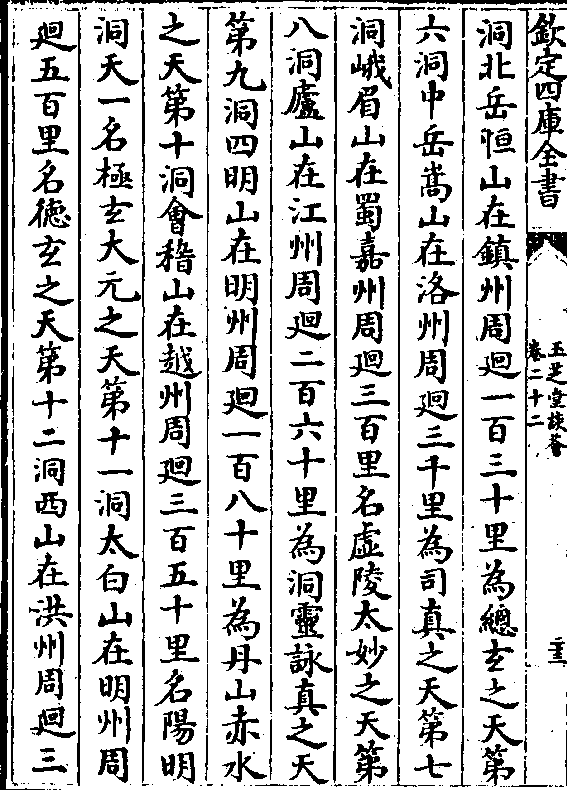 欽定四庫全書
玉芝堂談薈
卷二十二
二十三
洞北岳恒山在鎮州周廻一百三十里為總玄之天第
六洞中岳嵩山在洛州周廻三千里為司真之天第七
洞峨眉山在蜀嘉州周廻三百里名虛陵太妙之天第
八洞廬山在江州周廻二百六十里為洞靈詠真之天
第九洞四明山在明州周廻一百八十里為丹山赤水
之天第十洞會稽山在越州周廻三百五十里名陽明
洞天一名極玄大元之天第十一洞太白山在明州周
廻五百里名德玄之天第十二洞西山在洪州周廻三